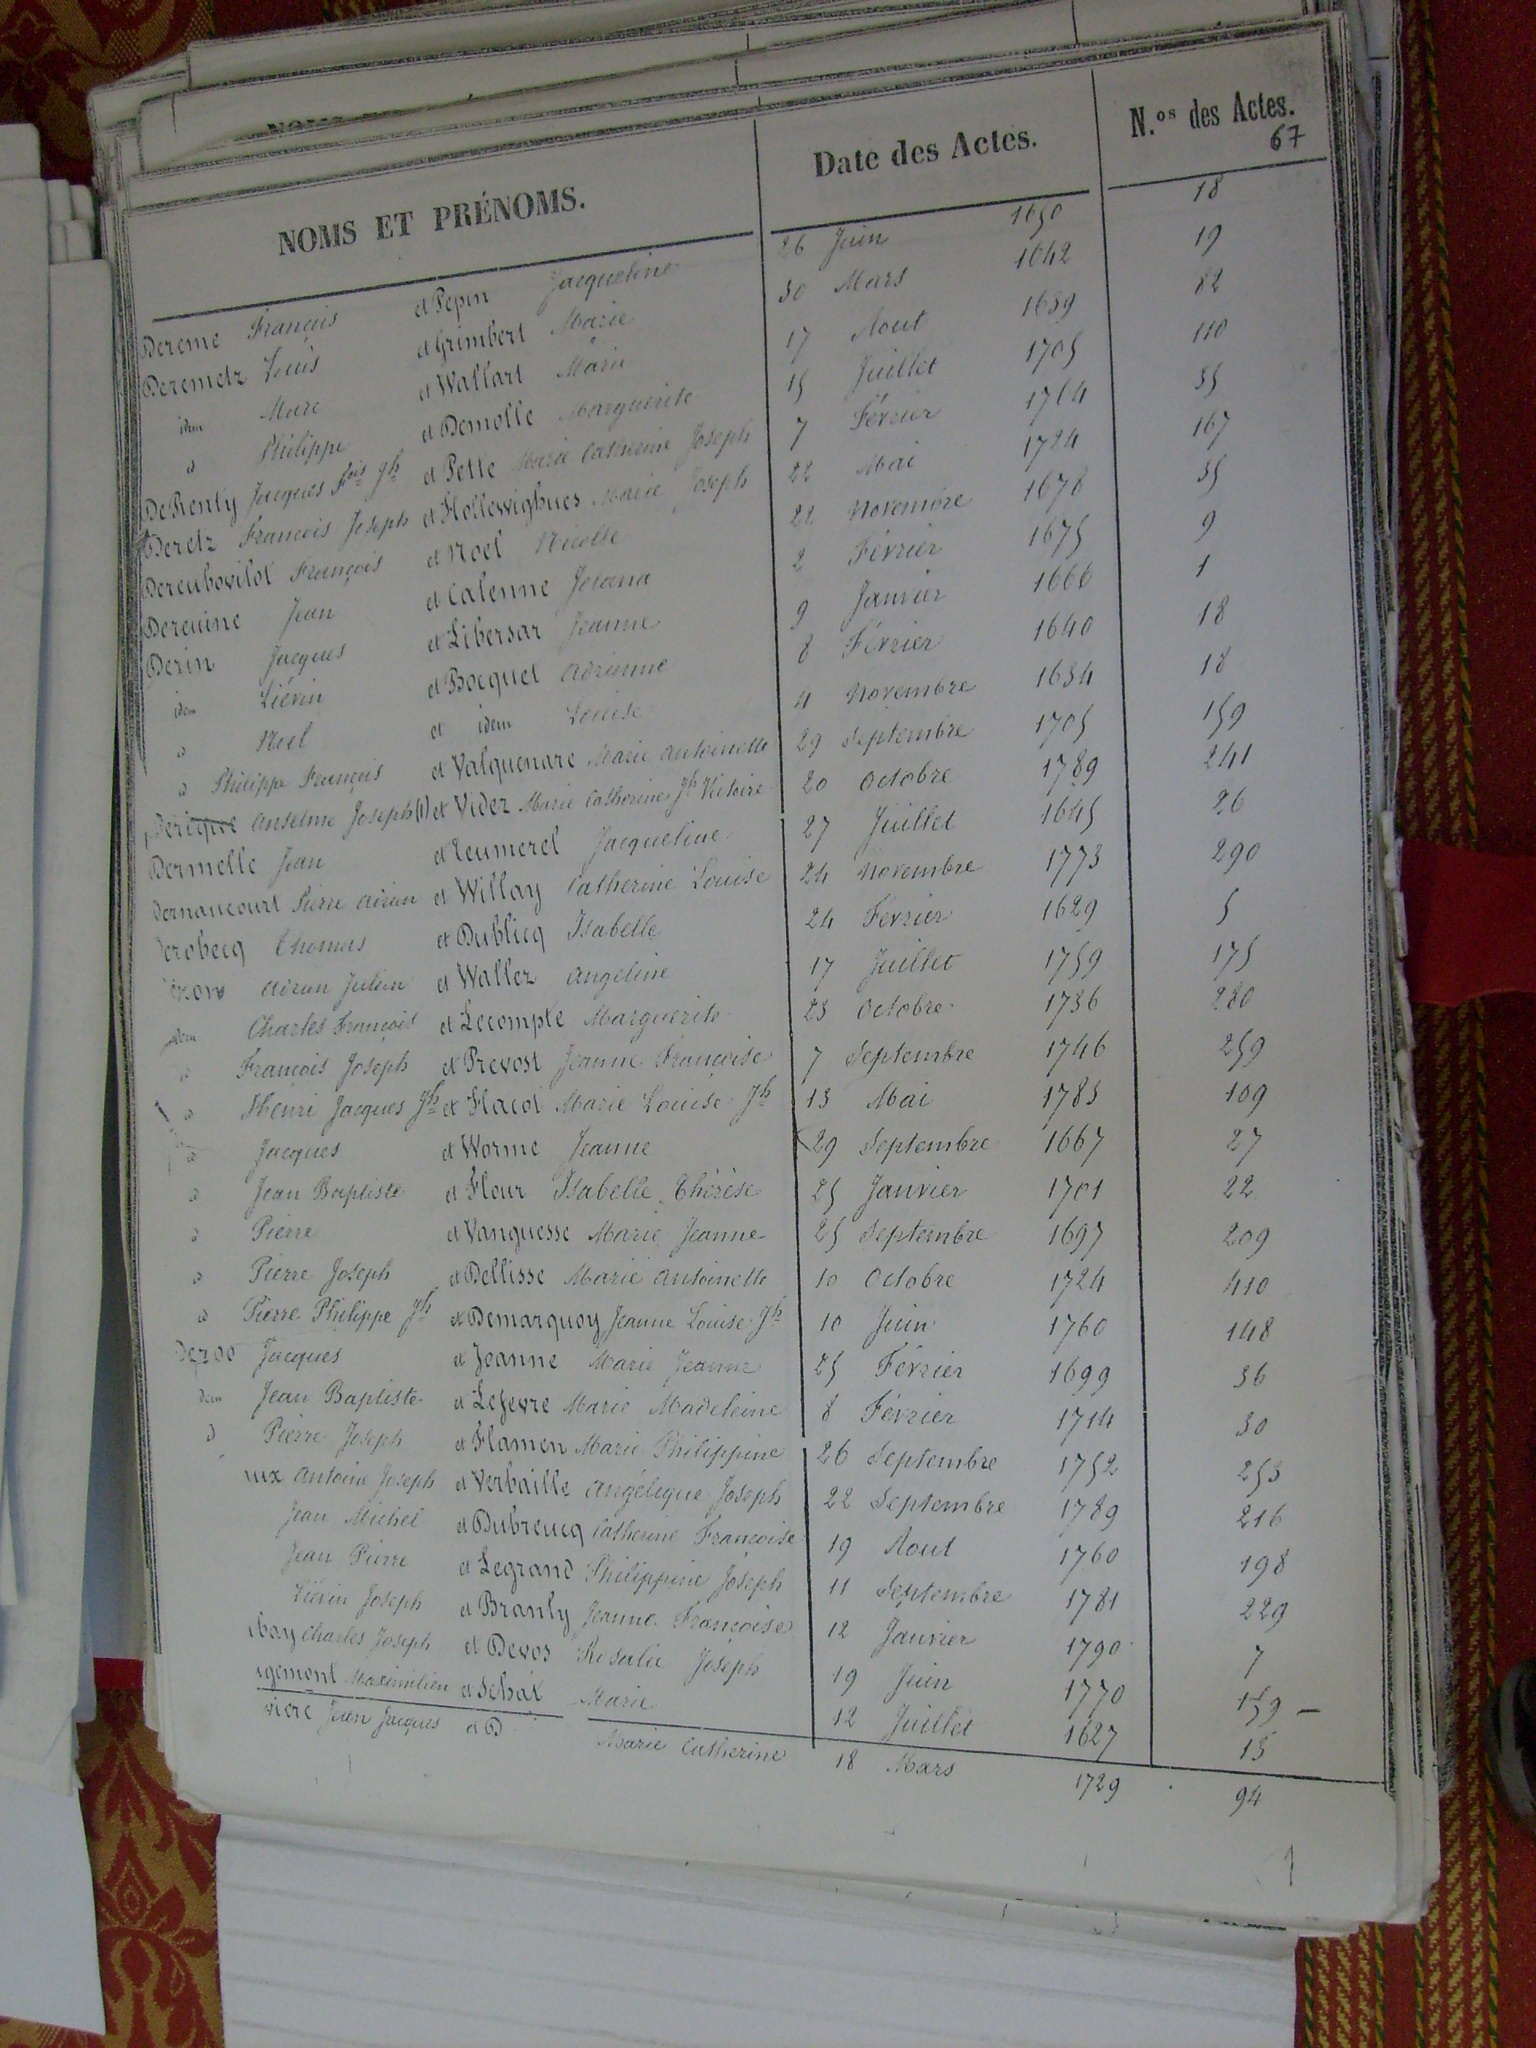 NOMS ET PRÉNOMS. Date des Actes. N.os des Actes.
67
Dereme François et Pepin Jacqueline 26 Juin 1650 18
Deremetz Louis et Grimbert Marie 30 Mars 1642 19
idem Marc et Wallart Marie 17 Aout 1639 82
d Philippe et Demolle Marguerite 15 Juillet 1705 110
DeRenty Jacques Fois Jh et Pette Marie Catherine Joseph 7 Février 1764 35
Deretz François Joseph et Hollewighues Marie Joseph 22 Mai 1724 167
Dereubovilot François et Noel Nicolle 22 Novembre 1678 35
Dereuine Jean et Calenne Jovana 2 Février 1675 9
Derin Jacques et Libersar Jeanne 9 Janvier 1666 1
idem Liévin et Bocquet Adrienne 8 Février 1640 18
d Noel et idem Louise 4 Novembre 1634 18
d Philippe François et Valquenare Marie Antoinette 29 Septembre 1705 159
Anselme Joseph (1) et Videz Marie Catherine Jh Victoire 20 Octobre 1789 241
Dermelle Jean et Leumerel Jacqueline 27 Juillet 1645 26
Dernaucourt Pierre Adrien et Willay Catherine Louise 24 Novembre 1773 290
erobecq Thomas et Dublicq Isabelle 24 Février 1629 5
Adrien Julien et Wallez Angeline 17 Juillet 1759 175
idem Charles François et Lecompte Marguerite 23 Octobre 1736 280
d François Joseph et Prevost Jeanne Françoise 7 Septembre 1746 259
d Henri Jacques Jh et Flacot Marie Louise Jh 13 Mai 1783 109
d Jacques et Worme Jeanne 29 Septembre 1667 27
d Jean Baptiste et Fleur Isabelle Thérèse 25 Janvier 1701 22
d Pierre et Vanquesse Marie Jeanne 25 Septembre 1697 209
d Pierre Joseph et Dellisse Marie Antoinette 10 Octobre 1724 410
d Pierre Philippe Jh et Demarquoy Jeanne Louise Jh 10 Juin 1760 148
Deroo Jacques et Jeanne Marie Jeanne 25 Février 1699 36
dem Jean Baptiste et Lefevre Marie Madeleine 8 Février 1714 30
d Pierre Joseph et Flamen Marie Philippine 26 Septembre 1752 253
ux Antoine Joseph et Verbaille Angélique Joseph 22 Septembre 1789 216
Jean Michel et Dubreucq Catherine Françoise 19 Aout 1760 198
Jean Pierre et Legrand Philippine Joseph 11 Septembre 1781 229
Liévin Joseph et Branly Jeanne Françoise 12 Janvier 1790 7
bay Charles Joseph et Devos Rosalie Joseph 19 Juin 1770 159
gemont Maximilien et Schax Marie 12 Juillet 1627 15
viere Jean Jacques et D Marie Catherine 18 Mars 1729 94